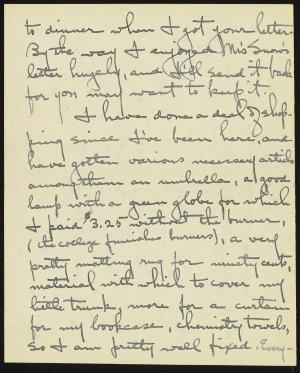 to dinner when I got your letter.
By the way I enjoyed Mis Snow's
letter hugely, and I'll send it back
for you may want to keep it.
I have done a deal of shop-
ping since I've been here, and
have gotten various necessary articles
among them an umbrella, a good
lamp with a green globe for which
I paid $3.25 without the burner,
(the college furnishes burners), a very
pretty matting rug for ninety cents,
material with which to cover my
little trunk, more for a curtain
for my bookcase, chemistry towels,
so I am pretty well fixed. Every-